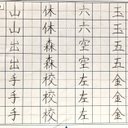 玉玉五五金金
六六空空左左
休休森森校校
山山出出手手